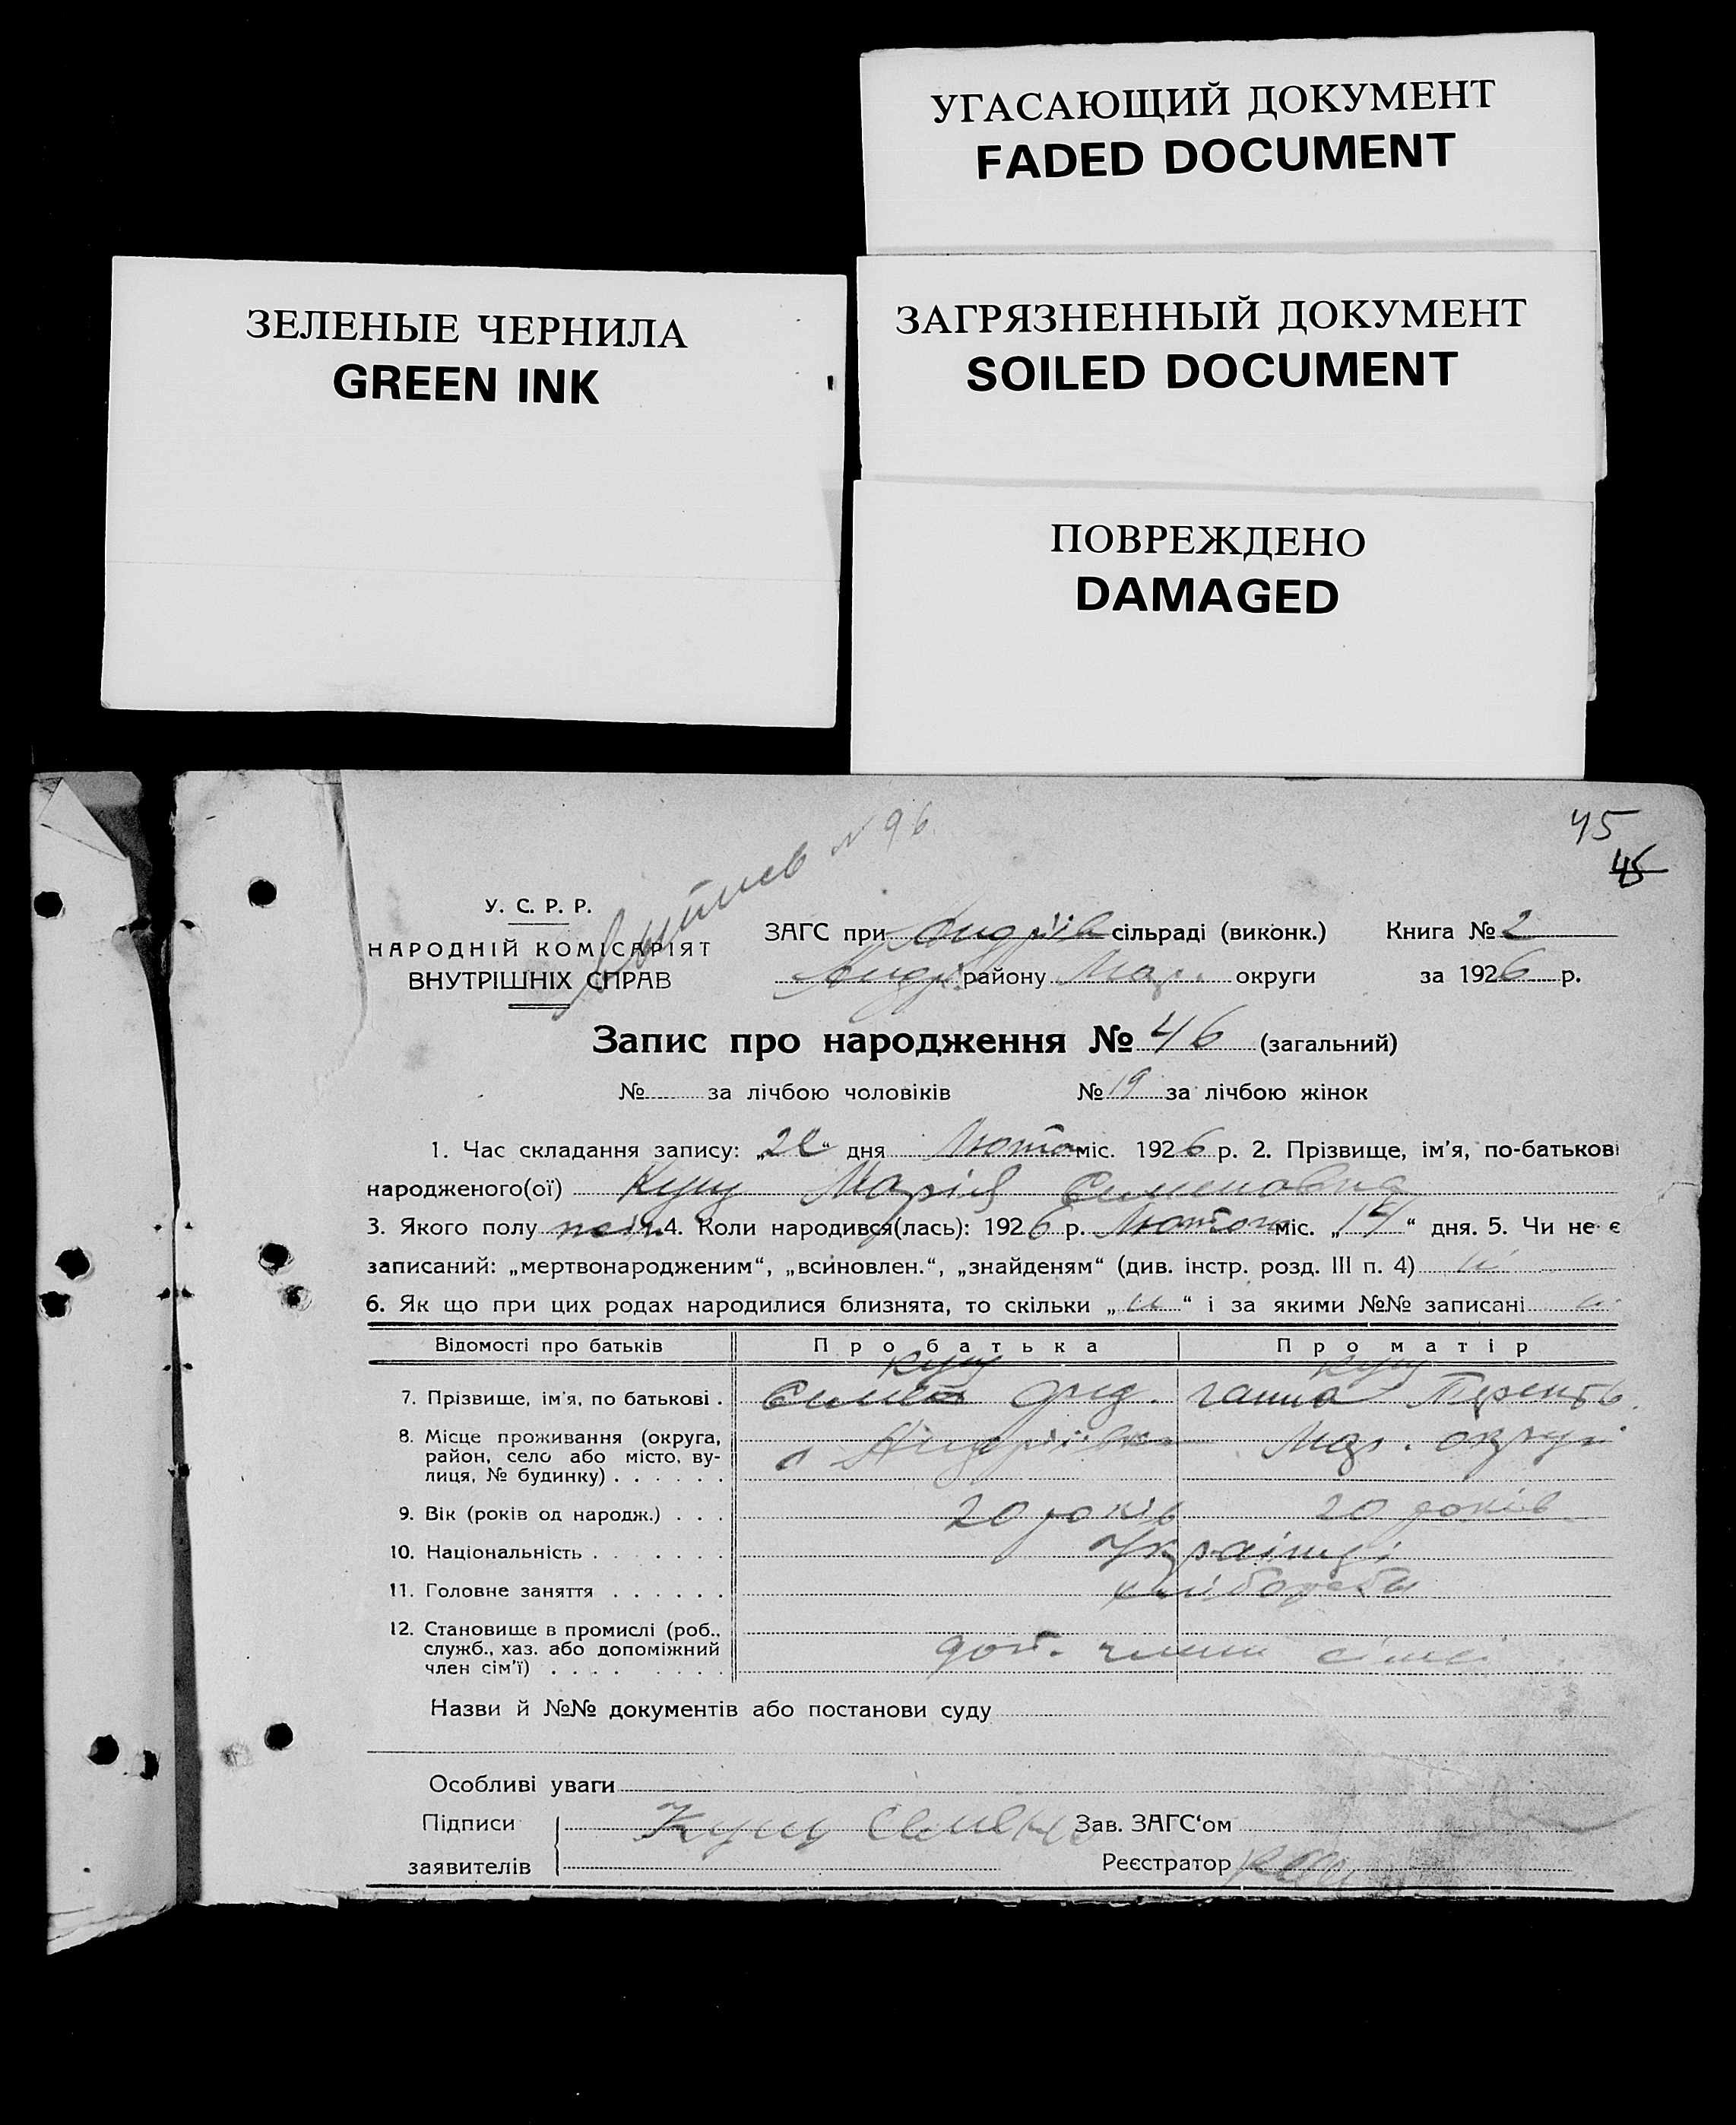 УГАСАЮЩИЙ ДОКУМЕНТ
FADED DOCUMENT
ЗАГРЯЗНЕННЫЙ ДОКУМЕНТ
SOILED DOCUMENT
ЗЕЛЕНЫЕ ЧЕРНИЛА
GREEN INK
ПОВРЕЖДЕНО
DAMAGED
N 96.
45
45
У. С. Р. Р.
НАРОДНІЙ КОМІСАРІЯТ
ВНУТРІШНІХ СПРАВ
ЗАГС при Андріїв сільраді (виконк.) Книга № 2
Андр. району Мар. округи за 1926 р.
Запис про народження № 46 (загальний)
№ за лічбою чоловіків № 19 за лічбою жінок
1. Час складання запису: „ “ дня Лютого міс. 1926 р. 2. Прізвище, ім'я, по-батькові
народженого(ої) Кущ Марія Семеновна
3. Якого полу жін. 4. Коли народився(лась): 1926 р. Лютого міс. „14“ дня. 5. Чи не є
записаний: „мертвонародженим“, „всиновлен.“, „знайденям“ (див. інстр. розд. III п. 4)
6. Як що при цих родах народилися близнята, то скільки „ “ і за якими №№ записані
Відомості про батьків Про батька Про матір
Кущ Кущ
7. Прізвище, ім'я, по батькові . Семен Ганна Терент.
8. Місце проживання (округа,
район, село або місто, ву-
лиця, № будинку) . . . . . . с Андріївка Мар. округи
9. Вік (років од народж.) . . . 20 років 20 років
10. Національність . . . . . . . Українці
11. Головне заняття . . . . . . хліборобы
12. Становище в промислі (роб.,
служб., хаз. або допоміжний
член сім'ї) . . . . . . . . доп. члени сімї
Назви й №№ документів або постанови суду
Особливі уваги
Підписи Кущ Семен Зав. ЗАГС'ом
заявителів Реєстратор